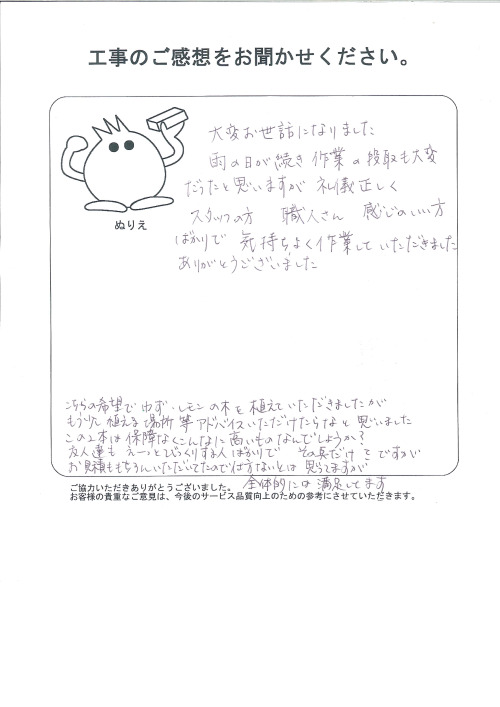 工事のご感想をお聞かせください。
大変お世話になりました
雨の日が続き 作業の段取も大変
だったと思いますが 礼儀正しく
スタッフの方 職人さん 感じのいい方
ばかりで 気持ちよく作業していただきました
ありがとうございました
ぬりえ
こちらの希望で ゆず・レモンの木を植えていただきましたが
もう少し 植える場所等アドバイスいただけたらなと思いました
この2本は保障なくこんなに高いものなんでしょうか?
友人達も えーっとびっくりする人ばかりで その点だけ ですが
お見積ももちろんいただいてたので仕方ないとは 思ってますが
全体的には満足してます
ご協力いただきありがとうございました。
お客様の貴重なご意見は、今後のサービス品質向上のための参考にさせていただきます。